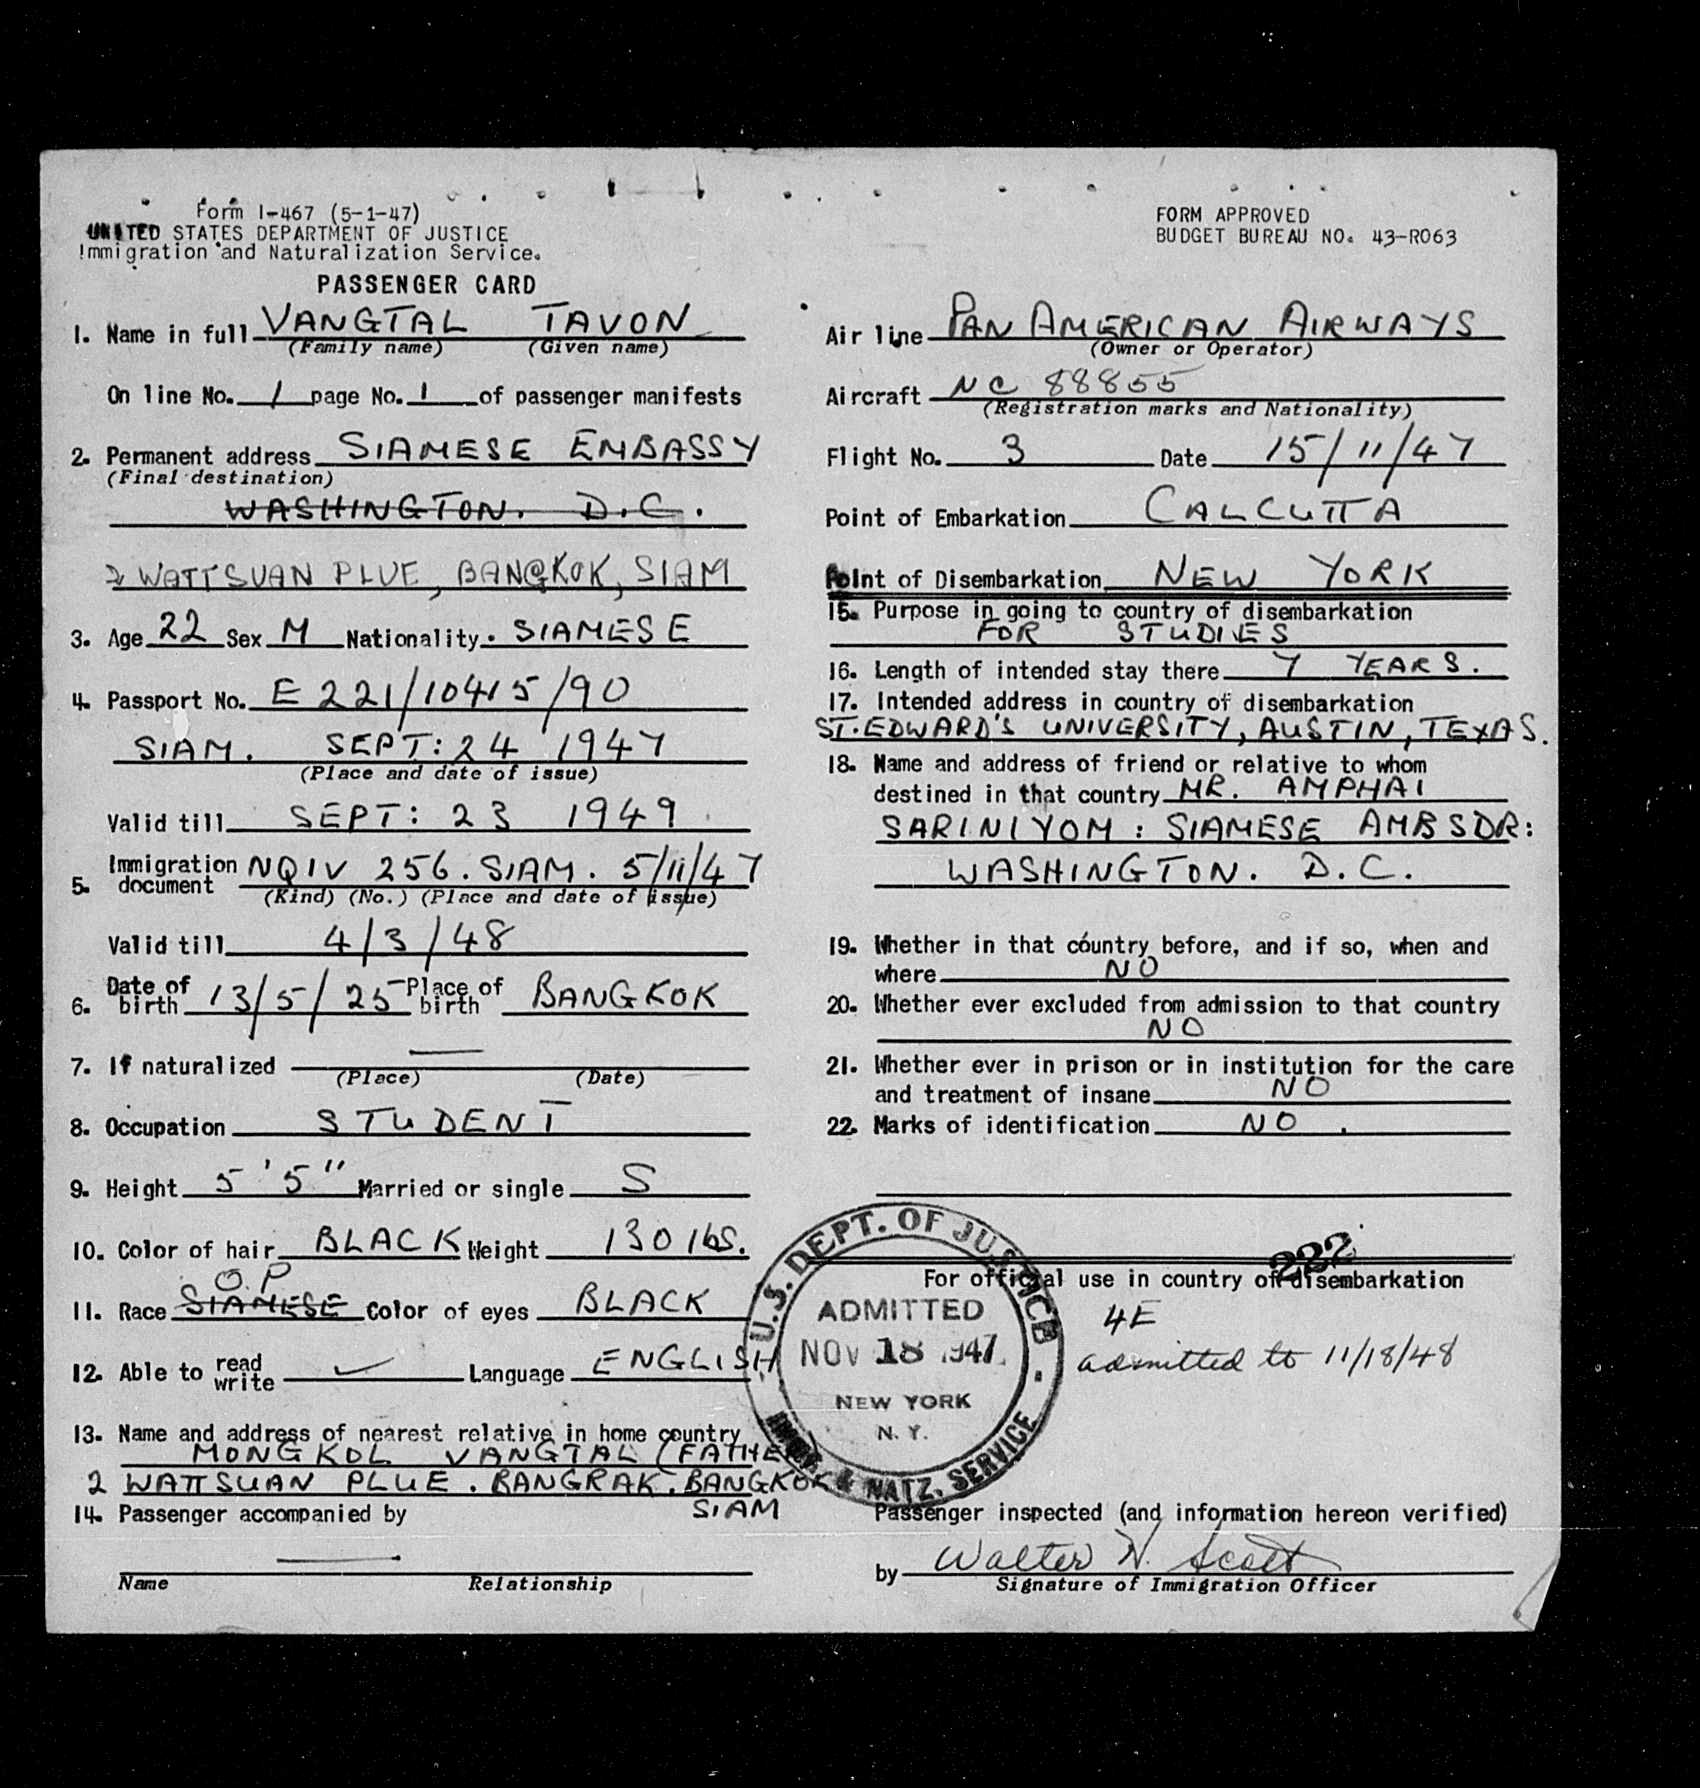 Form I-467 (5-1-47)
UNITED STATES DEPARTMENT OF JUSTICE
Immigration and Naturalization Service.
PASSENGER CARD
1. Name in full VANGTAL TAVON
(Family name) (Given name)
On line No. 1 page No. 1 of passenger manifests
2. Permanent address SIAMESE EMBASSY
(Final destination)
WASHINGTON. D.C.
2 WATTSUAN PLUE, BANGKOK, SIAM
3. Age 22 Sex M Nationality. SIAMESE
4. Passport No. E 221/10415/90
SIAM. SEPT: 24 1947
(Place and date of issue)
Valid till SEPT: 23 1949
5. Immigration document NQIV 256. SIAM. 5/11/47
(Kind) (No.) (Place and date of issue)
Valid till 4/3/48
6. Date of birth 13/5/25 Place of birth BANGKOK
7. If naturalized —
(Place) (Date)
8. Occupation STUDENT
9. Height 5'5" Married or single S
10. Color of hair BLACK Weight 130 lbs.
O.P
11. Race SIAMESE Color of eyes BLACK
12. Able to read write ✓ Language ENGLISH
13. Name and address of nearest relative in home country
MONGKOL VANGTAL (FATHE
2 WATTSUAN PLUE. BANGRAK. BANGKOK
SIAM
14. Passenger accompanied by
—
Name Relationship
FORM APPROVED
BUDGET BUREAU NO. 43-R063
Air line PAN AMERICAN AIRWAYS
(Owner or Operator)
Aircraft NC 88855
(Registration marks and Nationality)
Flight No. 3 Date 15/11/47
Point of Embarkation CALCUTTA
Point of Disembarkation NEW YORK
15. Purpose in going to country of disembarkation
FOR STUDIES
16. Length of intended stay there 7 YEARS.
17. Intended address in country of disembarkation
ST. EDWARD'S UNIVERSITY, AUSTIN, TEXAS.
18. Name and address of friend or relative to whom
destined in that country MR. AMPHAI
SARINIYOM : SIAMESE AMBSDR:
WASHINGTON. D.C.
19. Whether in that country before, and if so, when and
where NO
20. Whether ever excluded from admission to that country
NO
21. Whether ever in prison or in institution for the care
and treatment of insane NO
22. Marks of identification NO.
222
For official use in country of disembarkation
4E
admitted to 11/18/48
U.S. DEPT. OF JUSTICE
ADMITTED
NOV 18 1947
NEW YORK
N.Y.
IMMIG. & NATZ. SERVICE
Passenger inspected (and information hereon verified)
by Walter W. Scott
Signature of Immigration Officer